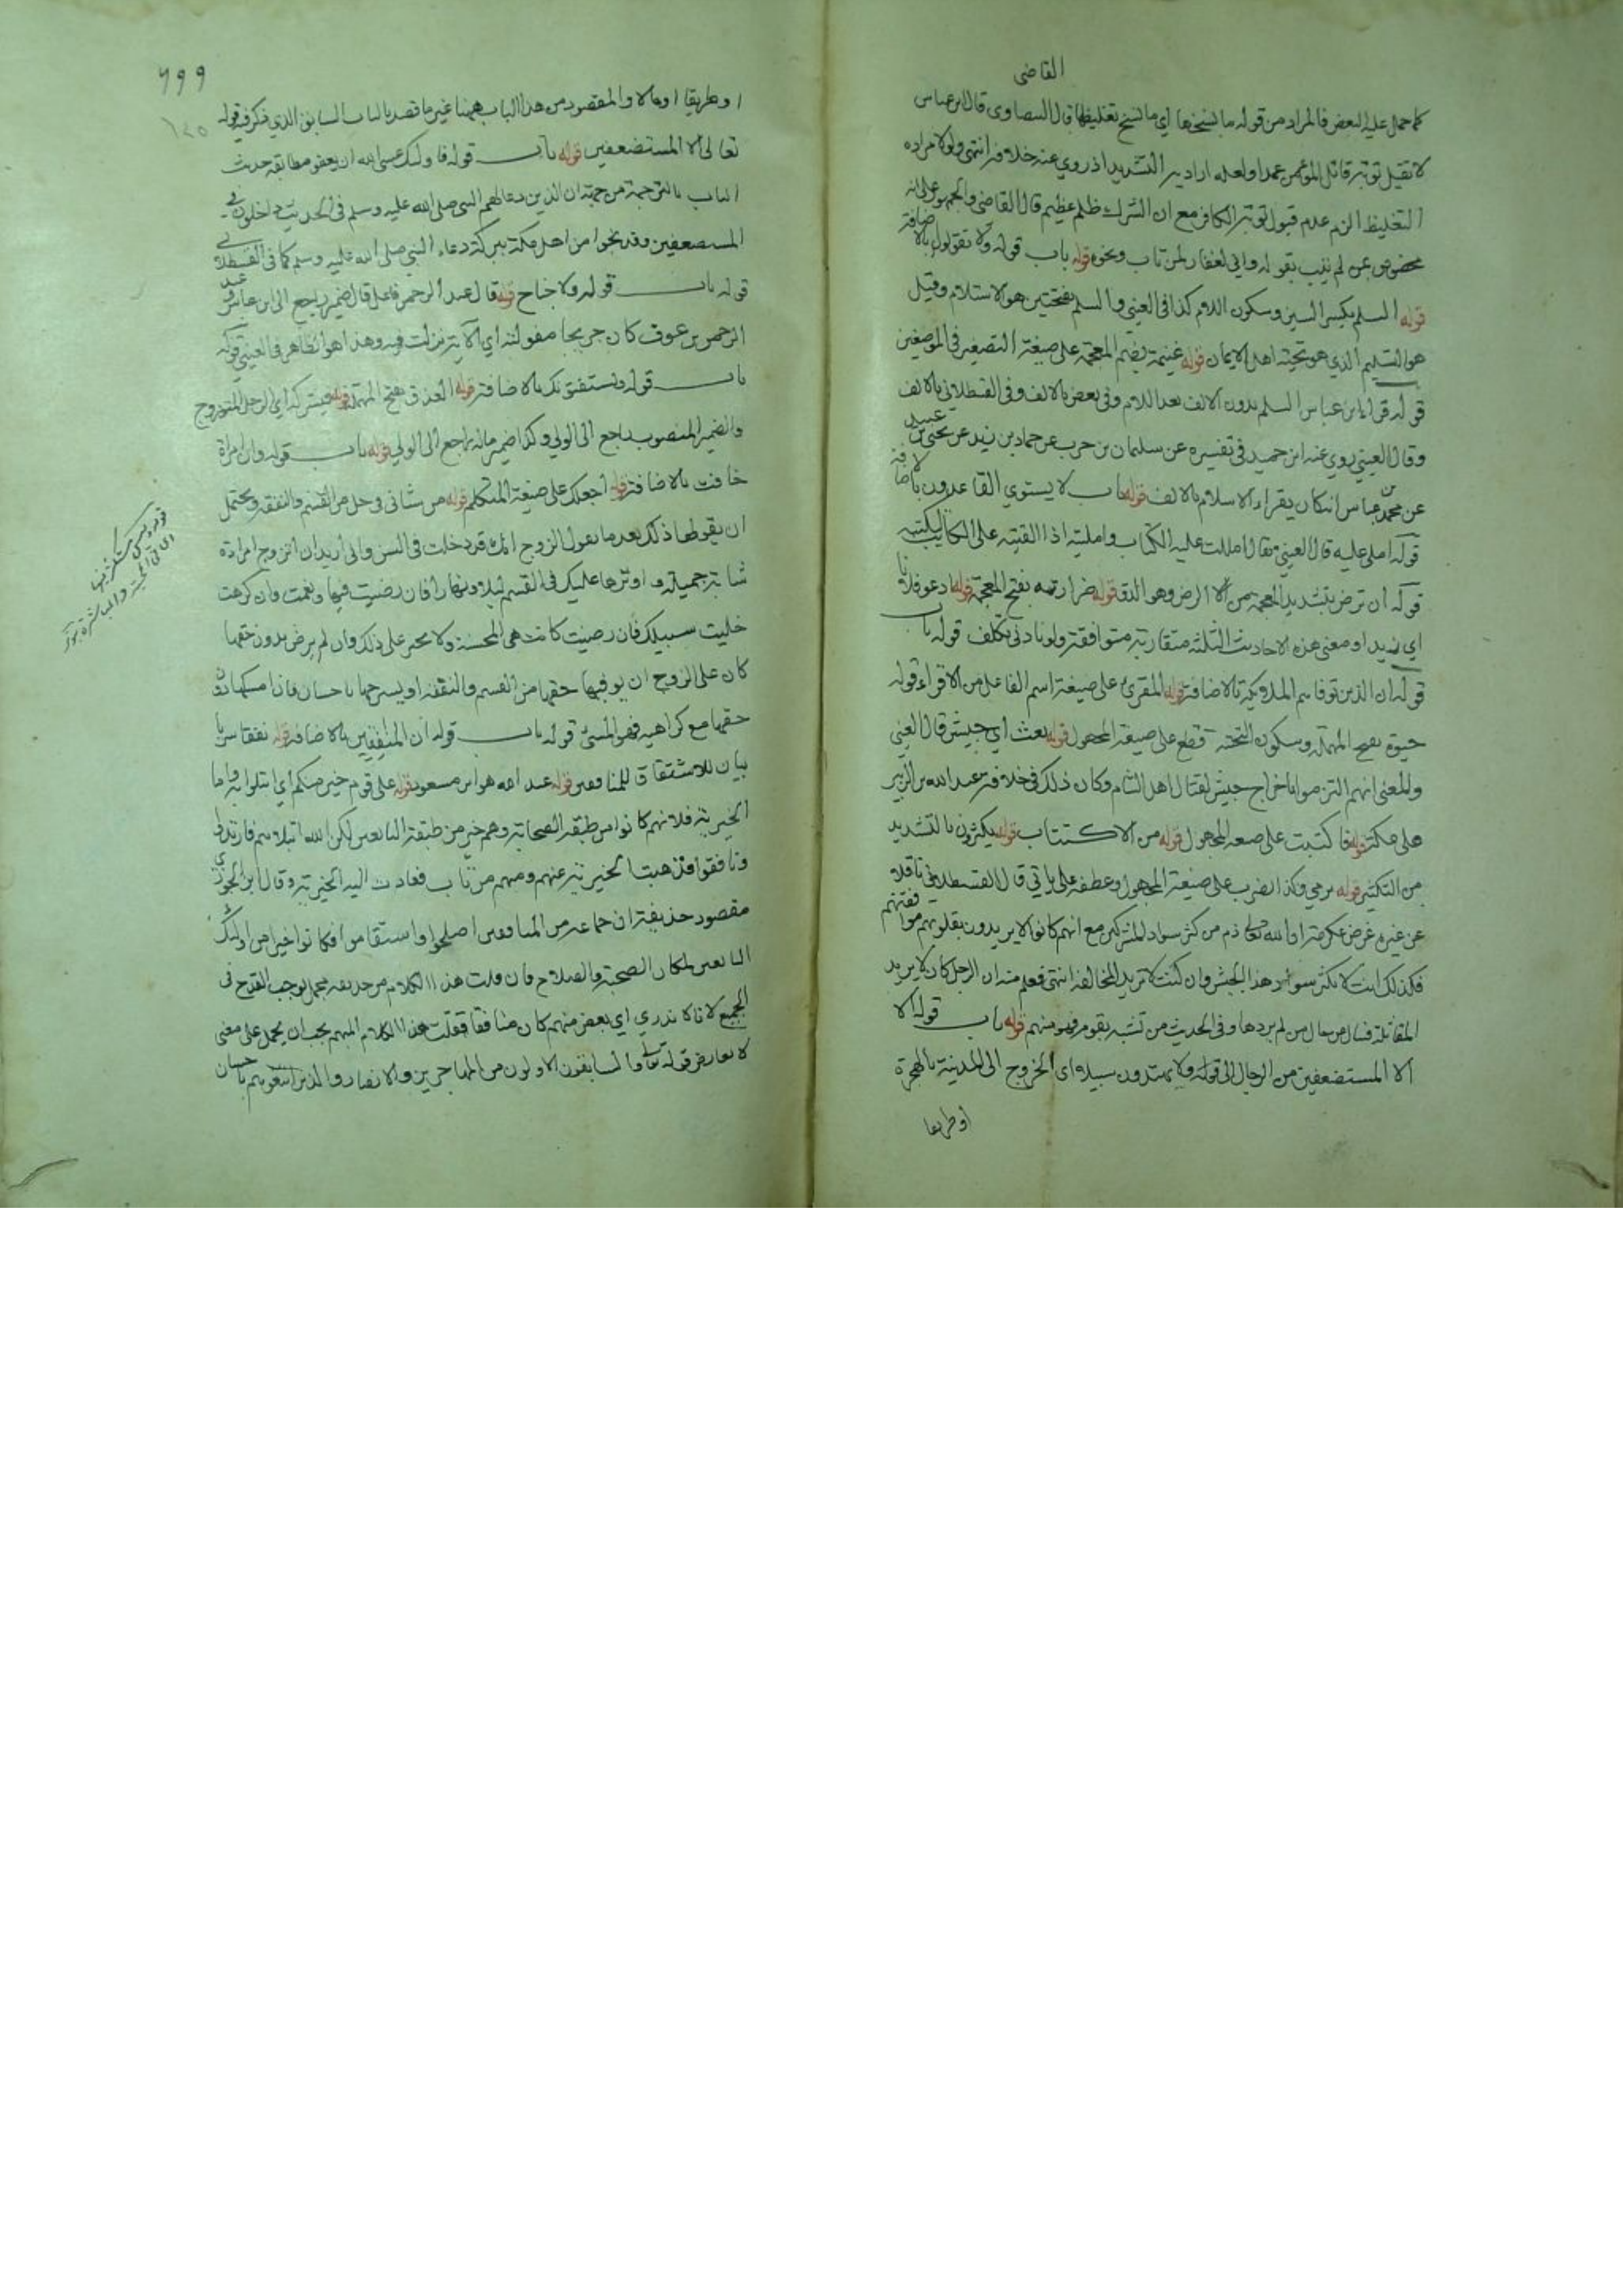 القاضى
كما حمل عليه البعض فالمراد من قوله ما نسخها اي ما نسخ تغليظها قال البيضاوى قال ابن عباس
لا تقبل توبة قاتل المؤمن عمدا ولعله اراد به التشديد اذ روي عنه خلافه انتهى ولولا مراده
التغليظ الزم عدم قبول توبة الكافر مع ان الشرك ظلم عظيم قال القاضى والجمهور على انه
مخصوص بمن لم يتب بقوله واني لغفار لمن تاب ونحوه قوله باب قوله ولا تقولوا بالاضافة
قوله السلم بكسر السين وسكون اللام كذا في العيني والسلم بفتحتين هو الاستلام وقيل
هو التسليم الذي هو تحية اهل الايمان قوله غنيمة بضم المعجمة على صيغة التصغير في الموضعين
قوله قراءة ابن عباس السلم بدون الالف بعد اللام وفي بعض بالالف وفي القسطلاني بالالف
وقال العيني روي عنه ابن حميد في تفسيره عن سليمان بن حرب عن حماد بن زيد عن يحيى بن عبيد
عن محمد عن ابن عباس انه كان يقراء الاسلام بالالف قوله باب لا يستوي القاعدون بالاضافة
قوله املى عليه قال العيني يقال امللت عليه الكتاب وامليته اذا القيته على الكاتب ليكتبه
قوله ان ترض بتشديد المعجمة من الرض وهو الدق قوله ضرارته بفتح المعجمة قوله ادعو فلانا
اي زيدا ومعنى هذه الاحاديث الثلثة متقاربة متوافقة ولو بادنى تكلف قوله باب
قوله ان الذين توفاهم الملائكة بالاضافة قوله المقرئ على صيغة اسم الفاعل من الاقراء قوله
حيوة بفتح المهملة وسكون التحتية قطع على صيغة المجهول قوله بعث اي جيش قال العيني
والمعنى انهم التزموا باخراج جيش لقتال اهل الشام وكان ذلك في خلافة عبد الله بن الزبير
على مكة قوله فاكتتبت على صيغة المجهول قوله من الاكتتاب قوله يكثرون بالتشديد
من التكثير قوله يرمي وكذا يضرب على صيغة المجهول وعطفه على ياتي قال القسطلاني ناقلا
عن غيره غرض عكرمة ان الله تعالى ذم من كثر سواد المشركين مع انهم كانوا لا يريدون بقلوبهم موافقتهم
فكذلك انت لا تكثر سواد هذا الجيش وان كنت لا تريد المخالفة انتهى فعلم منه ان الرجل كان لا يريد
المقاتلة فسال من حال من لم يردها وفي الحديث من تشبه بقوم فهو منهم قوله باب قوله الا
الا المستضعفين من الرجال الى قوله ولا يهتدون سبيلا اي الخروج الى المدينة بالهجرة
او طريقا
٦٩٩
او طريقا او مالا والمقصود من هذا الباب ههنا غير ما قصد بالباب السابق الذي ذكر فيه قوله
تعالى الا المستضعفين قوله باب قوله فاولئك عسى الله ان يعفو مطابقة حديث
الباب بالترجمة من جهة ان الذين دعا لهم النبي صلى الله عليه وسلم في الحديث داخلون في
المستضعفين وقد نجوا من اهل مكة ببركة دعاء النبي صلى الله عليه وسلم كما في القسطلاني
قوله باب قوله ولا جناح قوله قال عبد الرحمن فاعل قال ضمير راجع الى ابن عباس وعبد
الرحمن بن عوف كان جريحا مفعوله اي الآية نزلت فيه وهذا هو الظاهر في العيني قوله
باب قوله ويستفتونك بالاضافة قوله العذق بفتح المهملة قوله فيشركه اي الرجل المتزوج
والضمير المنصوب راجع الى الولي وكذا ضمير ماله راجع الى الولي قوله باب قوله وان امراة
خافت بالاضافة قوله اجعلك على صيغة المتكلم قوله من شاني في حل من القسم والنفقة ويحتمل
ان يقولها ذلك بعد ما يقول الزوج انك قد دخلت في السن واني اريد ان اتزوج امراة
شابة جميلة و اوثرها عليك في القسم ليلا ونهارا فان رضيت فبها ونعمت وان كرهت
خليت سبيلك فان رضيت كانت هي المحسنة ولا يجبر على ذلك وان لم يرض بدون حقها
كان على الزوج ان يوفيها حقها من القسم والنفقة او يسرحها باحسان فاذا امسكها
حقها مع كراهيه فهو المسئ قوله باب قوله ان المنافقين بالاضافة قوله نفقا سربا
بيان للاشتقاق للمنافقين قوله عبد الله هو ابن مسعود قوله على قوم خير منكم اي ابتلوا به واما
الخيرية فلانهم كانوا من طبقة الصحابة وهم خير من طبقة التابعين لكن الله ابتلاهم فارتدوا
ونافقوا فذهبت الخيرية عنهم ومنهم من تاب فعادت اليه الخيرية وقال ابن الجوزي
مقصود حذيفة ان جماعة من المنافقين اصلحوا واستقاموا فكانوا خيرا من اولئك
التابعين لمكان الصحبة والصلاح فان قلت هذا الكلام من حذيفة مجمل توجب القدح في
الجميع لانا لا ندري اي بعض منهم كان منافقا فقلت هذا الكلام المبهم يجب ان يحمل على معنى
لا يعارض قوله تعالى والسابقون الاولون من المهاجرين والانصار والذين اتبعوهم باحسان
قوله ليس بمستكثر منها
اي في المحبة والمباشرة